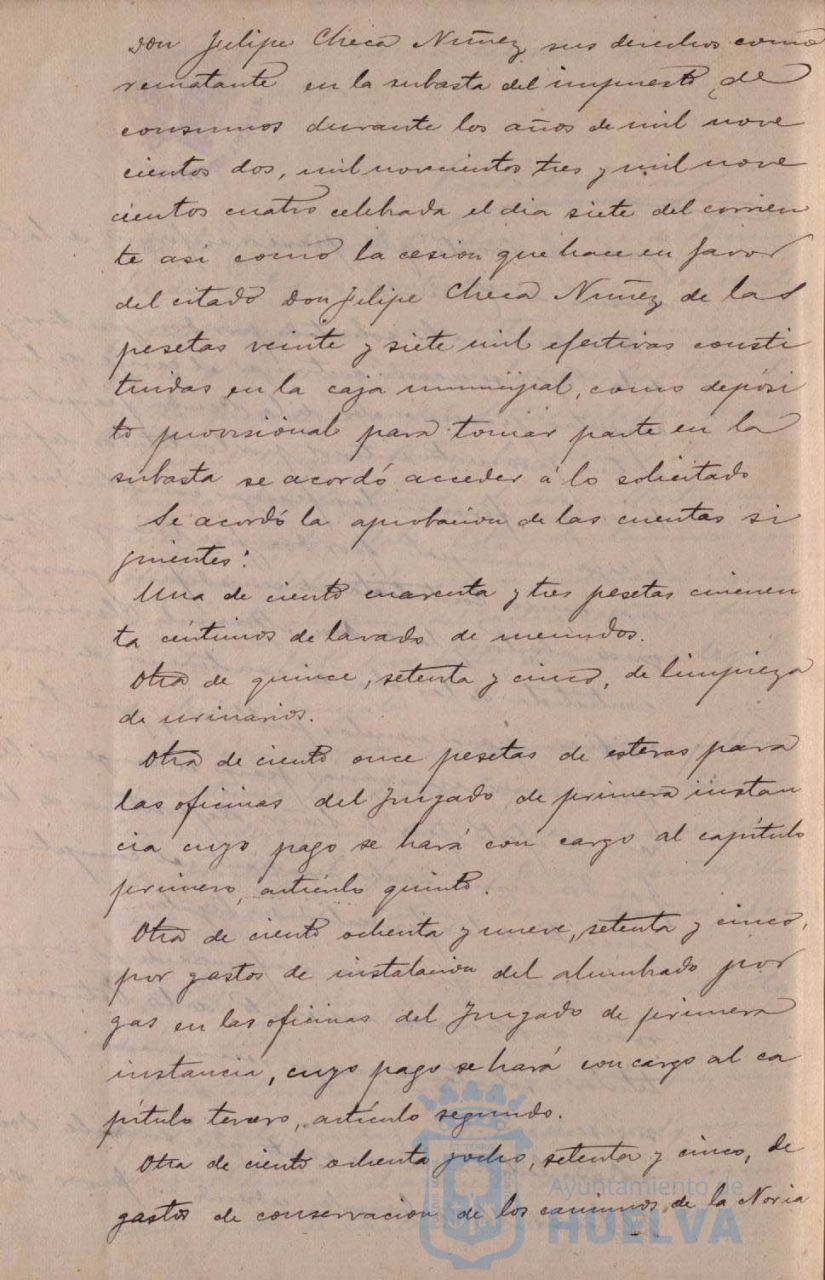 Don Felipe Checa Nuñez sus derechos como
rematante en la subasta del impuesto de
consumos durante los años de mil nove
cientos dos, mil novecientos tres y mil nove
cientos cuatro celebrada el dia siete del corrien
te asi como la cesion que hace en favor
del citado Don Felipe Checa Nuñez de las
pesetas veinte y siete mil efectivas consti
tuidas en la caja municipal, como depósi
to provisional para tomar parte en la
subasta se acordó acceder á lo solicitado
Se acordó la aprobacion de las cuentas si
guientes:
Una de ciento cuarenta y tres pesetas cincuen
ta céntimos de lavado de menudos.
Otra de quince, setenta y cinco, de limpieza
de urinarios.
Otra de ciento once pesetas de esteras para
las oficinas del Juzgado de primera instan
cia cuyo pago se hará con cargo al capítulo
primero, artículo quinto.
Otra de ciento ochenta y nueve, setenta y cinco,
por gastos de instalacion del alumbrado por
gas en las oficinas del Juzgado de primera
instancia, cuyo pago se hará con cargo al ca
pítulo tercero, artículo segundo.
Otra de ciento ochenta y ocho, setenta y cinco, de
gastos de conservacion de los caminos de la Noria
Ayuntamiento de
HUELVA